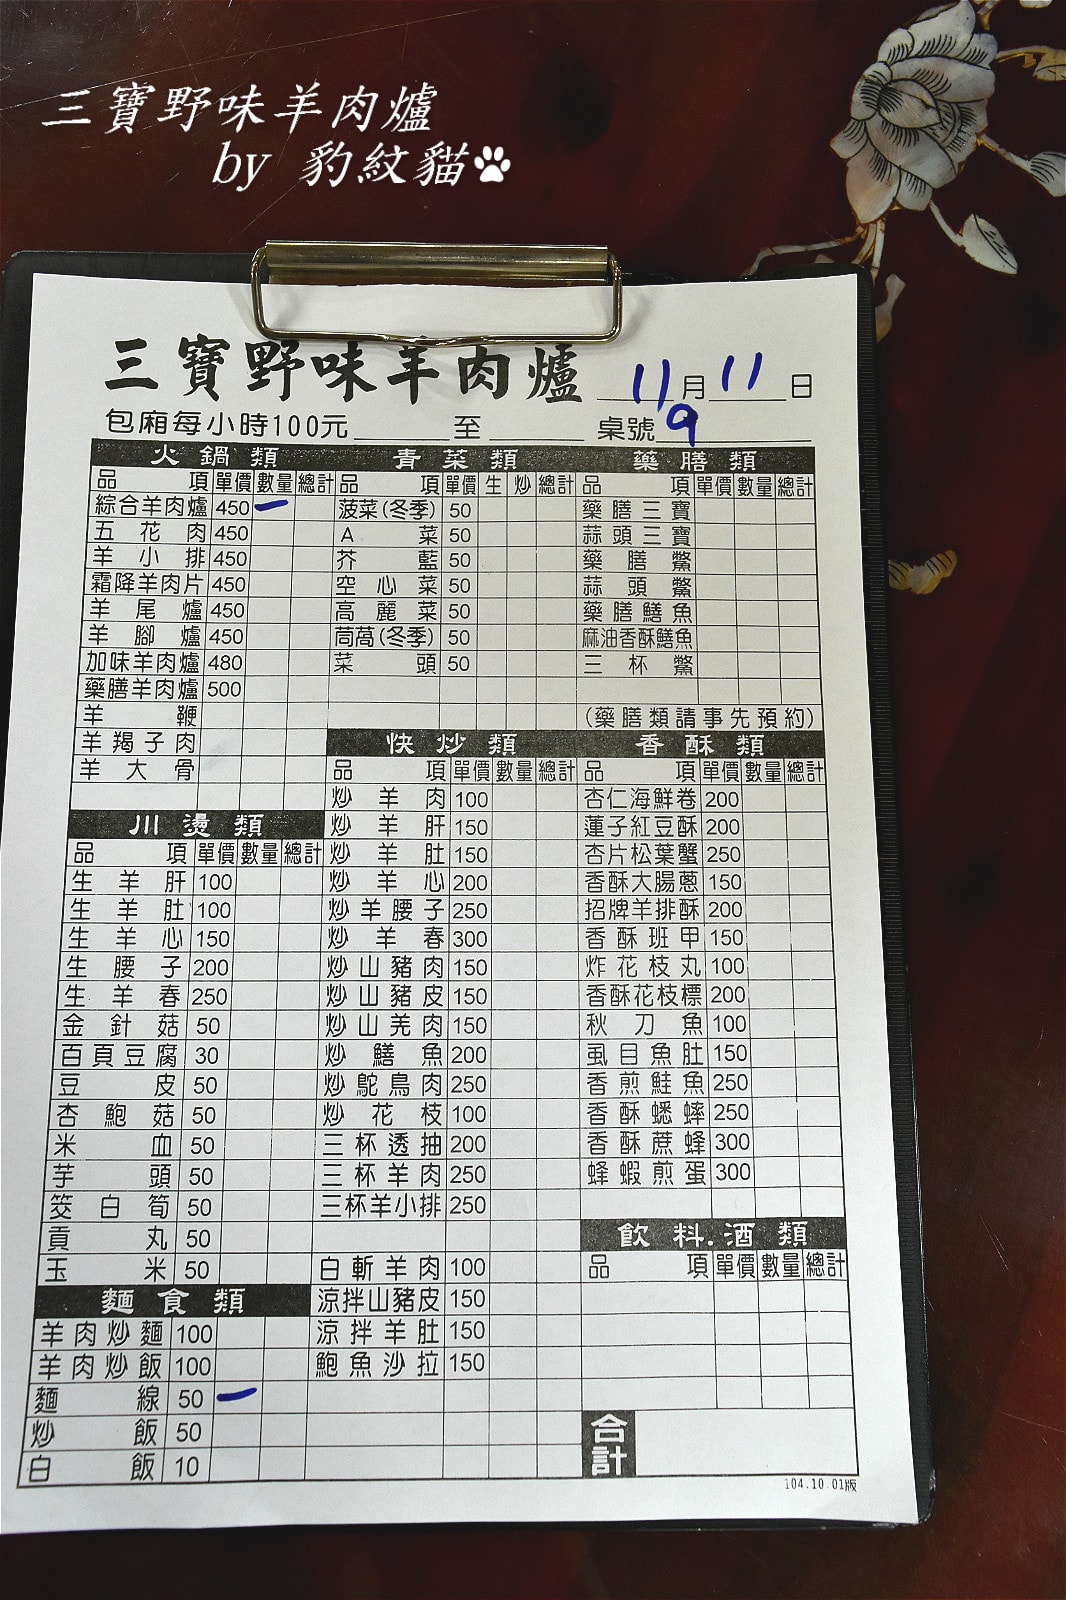 三寶野味羊肉爐
by 豹紋貓
三寶野味羊肉爐 11月11日
包廂每小時100元 至 桌號 9
火鍋類
品項 單價 數量 總計
綜合羊肉爐 450 一
五花肉 450
羊小排 450
霜降羊肉片 450
羊尾爐 450
羊腳爐 450
加味羊肉爐 480
藥膳羊肉爐 500
羊鞭
羊羯子肉
羊大骨
川燙類
品項 單價 數量 總計
生羊肝 100
生羊肚 100
生羊心 150
生腰子 200
生羊春 250
金針菇 50
百頁豆腐 30
豆皮 50
杏鮑菇 50
米血 50
芋頭 50
筊白筍 50
貢丸 50
玉米 50
麵食類
羊肉炒麵 100
羊肉炒飯 100
麵線 50 一
炒飯 50
白飯 10
青菜類
品項 單價 生 炒 總計
菠菜(冬季) 50
A菜 50
芥藍 50
空心菜 50
高麗菜 50
茼蒿(冬季) 50
菜頭 50
快炒類
品項 單價 數量 總計
炒羊肉 100
炒羊肝 150
炒羊肚 150
炒羊心 200
炒羊腰子 250
炒羊春 300
炒山豬肉 150
炒山豬皮 150
炒山羌肉 150
炒鱔魚 200
炒鴕鳥肉 250
炒花枝 100
三杯透抽 200
三杯羊肉 250
三杯羊小排 250
白斬羊肉 100
涼拌山豬皮 150
涼拌羊肚 150
鮑魚沙拉 150
藥膳類
品項 單價 數量 總計
藥膳三寶
蒜頭三寶
藥膳鱉
蒜頭鱉
藥膳鱔魚
麻油香酥鱔魚
三杯鱉
(藥膳類請事先預約)
香酥類
品項 單價 數量 總計
杏仁海鮮卷 200
蓮子紅豆酥 200
杏片松葉蟹 250
香酥大腸蔥 150
招牌羊排酥 200
香酥班甲 150
炸花枝丸 100
香酥花枝標 200
秋刀魚 100
虱目魚肚 150
香煎鮭魚 250
香酥蟋蟀 250
香酥蔗蜂 300
蜂蝦煎蛋 300
飲料.酒類
品項 單價 數量 總計
合計
104.10.01版